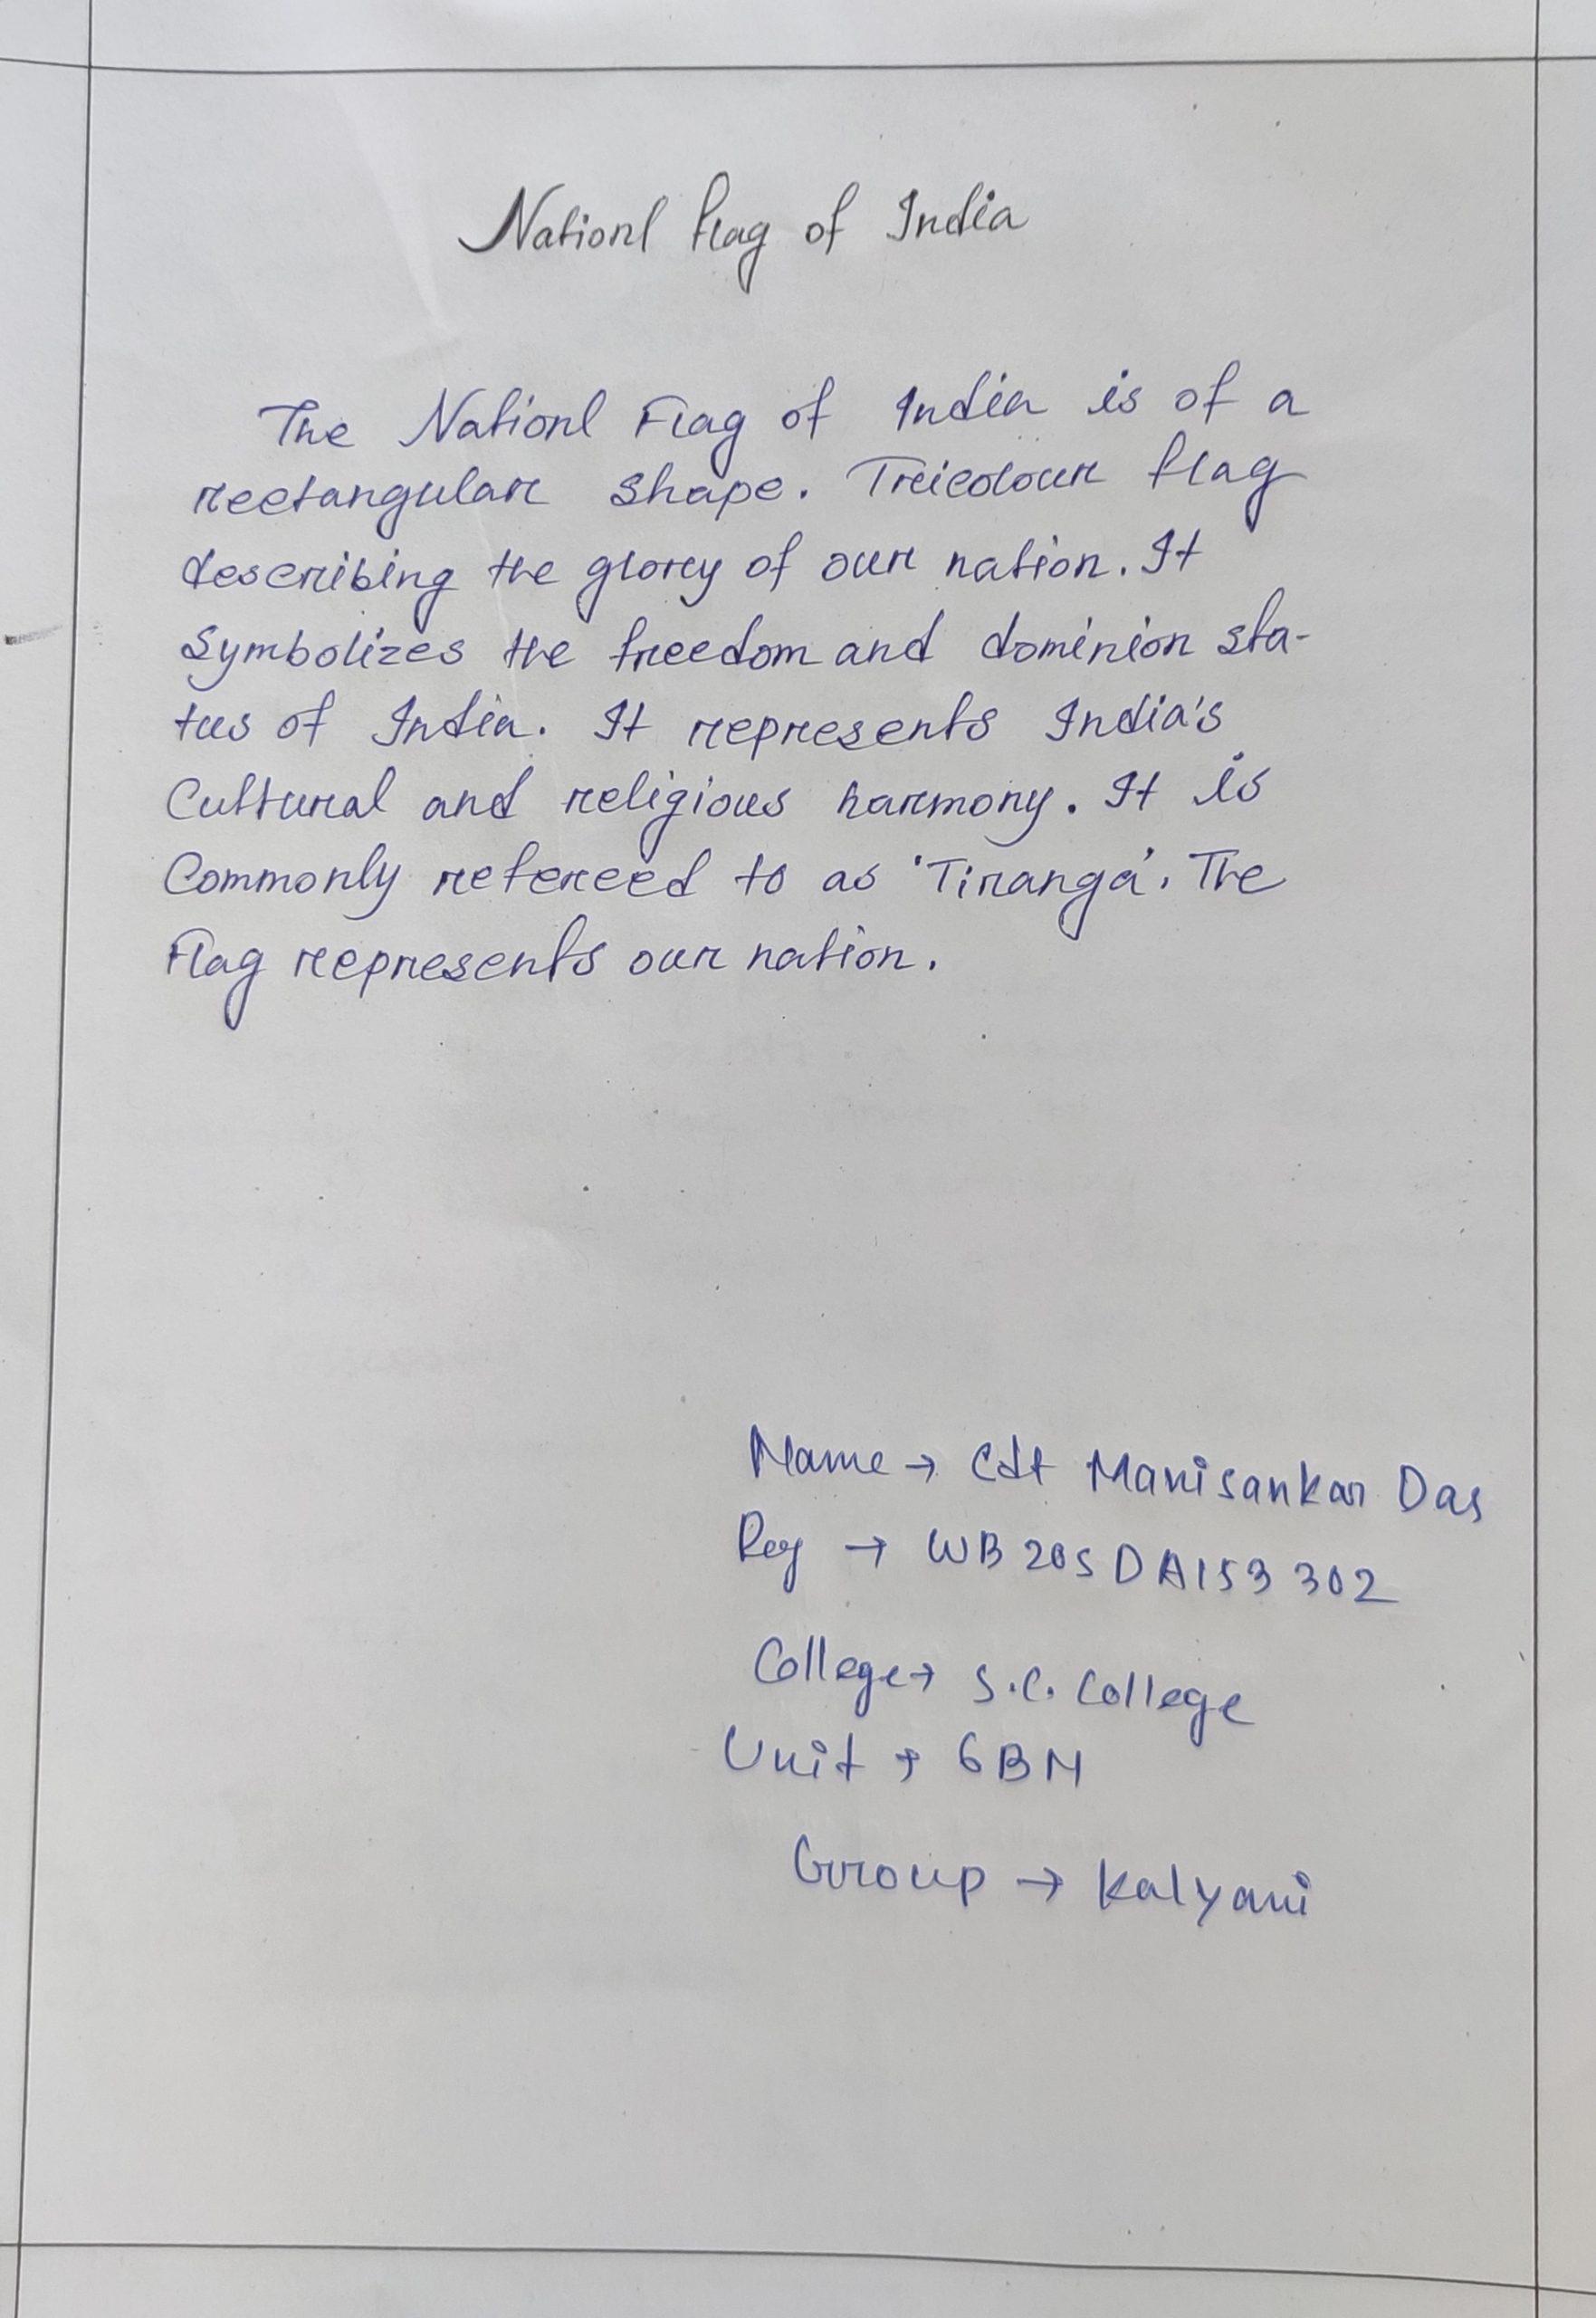 Nationl flag of India
The Nationl Flag of India is of a
rectangular shape. Tricolour flag
describing the glory of our nation. It
symbolizes the freedom and dominion sta-
tus of India. It represents India's
Cultural and religious harmony. It is
Commonly refereed to as 'Tiranga'. The
Flag represents our nation.
Name → Cdt Manisankar Das
Reg → WB20SDA153302
College → S.C. College
Unit → 6BN
Group → Kalyani